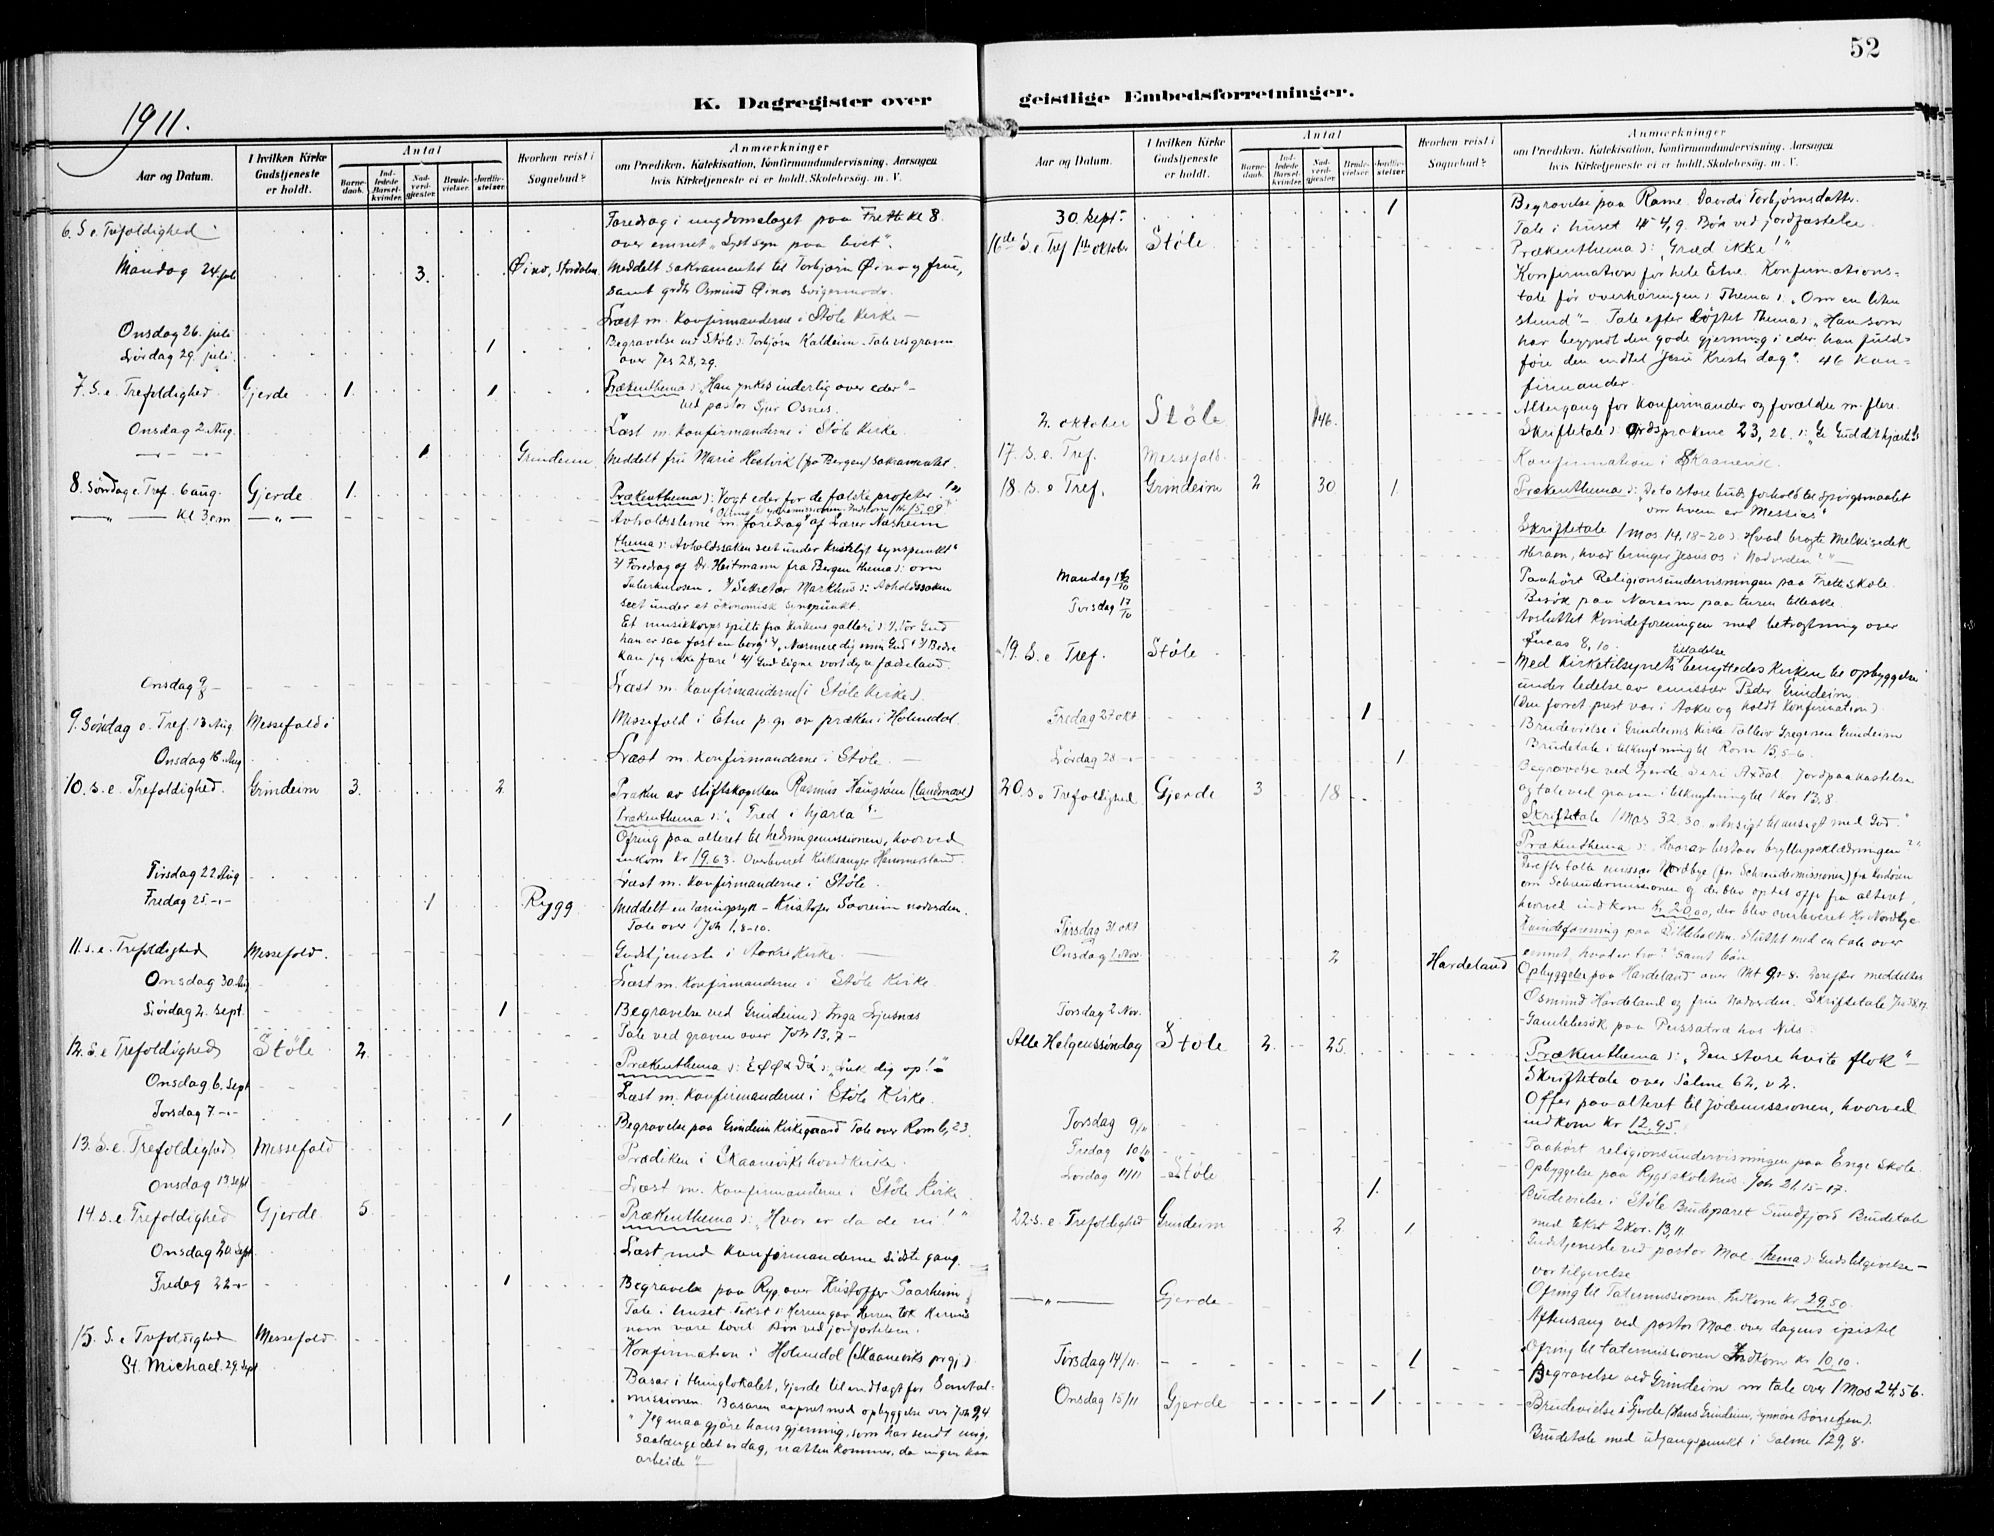 52
K. Dagregister over geistlige Embedsforretninger.
1911.
Aar og Datum.
I hvilken Kirke Gudstjeneste er holdt.
Antal
Barnedaab.
Indledede Barselkvinder.
Nadverdgjester.
Brudevielser.
Jordfæstelser.
Hvorhen reist i Sognebud?
Anmærkninger
om Prædiken, Katekisation, Konfirmandundervisning, Aarsagen
hvis Kirketjeneste ei er holdt, Skolebesøg, m. V.
6. S. e. Trefoldighed
Foredrag i ungdomslaget paa Frette kl 8
over emnet „Lyst syn paa livet".
Mandag 24 juli 3. Øino, Stordalen Meddelt sakramentet til Torbjørn Øino og frue,
samt Osmund Øinos svigermoder.
Onsdag 26. juli Læst m. konfirmanderne i Støle Kirke –
Lördag 29. juli 1 Begravelse ved Støle : Torbjørn Kaldeim. Tale ved graven
over Jes 28,29.
7. S. e. Trefoldighed Gjerde 1. 1 Prækenthema : „Han ynkes inderlig over eder" –
ved pastor Sjur Osnes.
Onsdag 2 Aug. Læst m. konfirmanderne i Støle Kirke.
1 Grindeim Meddelt fru Marie Hestvik (fra Bergen) sakramentet.
8. Søndag e. Tref. 6 aug. Gjerde 1. Prækenthema : Vogt eder for de falske profeter!
– „ – kl 3 e.m – „ –
Avholdsstevne m. foredrag af Lærer Næsheim
thema : Avholdssaken seet under kristeligt synspunkt"
2/ Foredrag af Dr. Heitmann fra Bergen thema : om
Tuberkulosen. 3/ Sekretær Markhus : Avholdssaken
seet under et økonomisk synspunkt.
Et musikkorps spilte fra kirkens galleri : 1/ Vor Gud
han er saa fast en borg 2/ „Nærmere dig min Gud 3/ Bedre
kan jeg ikke fare 4/ Gud signe vort dyre fædreland.
Onsdag 9/8 – Læst m. konfirmanderne (i Støle Kirke).
9. Søndag e. Tref. 13 Aug. Messefald Messefald i Etne p. gr. av præken i Holmedal.
Onsdag 16. Aug Læst m. konfirmanderne i Støle. –
10. S. e. Trefoldighed. Grindeim 3. 2 Præken av stiftskapellan Rasmus Haugsøen (landsmaal)
Prækenthema : „Fred i hjarta" –
Ofring paa alteret til hedningemissionen, hvorved
indkom kr 19.63. Overleveret Kirkesanger Hammersland.
Tirsdag 22 Aug Læst m. konfirmanderne i Støle.
Fredag 25 – 1 Rygg Meddelt en tæringssyk – Kristofer nadverden.
Tale over 1 Joh 1, 8-10.
11. S. e. Trefoldighed Messefald. Gudstjeneste i Aakre Kirke. –
Onsdag 30 Aug Læst m. konfirmanderne i Støle Kirke.
Lördag 2. sept. 1 Begravelse ved Grindeim : Inga Ljusnæs
Tale ved graven over Joh 13,7 –
12. S. e Trefoldighed Støle 2. Prækenthema : „Luk dig op!"
Onsdag 6. Sept Læst m. konfirmanderne i Støle Kirke.
Torsdag 7 – 1 Begravelse paa Grindeim Kirkegaard Tale over Rom 6, 23.
13. S. e. Trefoldighed Messefald Prædiken i Skaanevik hovedkirke.
Onsdag 13 sept Læst m. konfirmanderne i Støle Kirke.
14. S. e Trefoldighed Gjerde. 5. Prækenthema : „Hvor er da de ni!"
Onsdag 20. Sept Læst med konfirmanderne sidste gang.
Fredag 22 – 1 Begravelse paa Ryg over Kristoffer
Tale i huset. Tekst : Herren gav Herren tok Herrens
navn være lovet. Bön ved jordfæstelsen.
15. S. e Trefoldighed Messefald. Konfirmation i Holmedal (Skaaneviks prgj.)
St. Michael. 29. Sept Basar i tinglokalet, Gjerde til indtægt for Santal-
missionen. Basaren aapnet med opbyggelse over Joh 9,4
„ Jeg maa gjøre hans gjerning, som har sendt mig,
saalænge det er dag, natten kommer, da ingen kan
arbeide" –
Aar og Datum.
I hvilken Kirke Gudstjeneste er holdt.
Antal
Barnedaab.
Indledede Barselkvinder.
Nadverdgjester.
Brudevielser.
Jordfæstelser.
Hvorhen reist i Sognebud?
Anmærkninger
om Prædiken, Katekisation, Konfirmandundervisning, Aarsagen
hvis Kirketjeneste ei er holdt, Skolebesøg, m. V.
30. sept. 1 Begravelse paa Rame. Torbjørnsdatter.
Tale i huset Bön ved jordfæstelse.
16de S. e Tref 1ste oktober Støle Prækenthema : „Græd ikke!"
Konfirmation for hele Etne. Konfirmations-
tale før overhøringen : Thema : „Om en liten
stund" – Tale efter löftet Thema : „Han som
har begyndt den gode gjerning i eder han fuld-
føre den indtil Jesu Kristi dag". 46 kon-
firmander.
2. oktober Støle 146. Altergang for konfirmander og forældre m. flere.
Skriftetale : Ordsprokene 23, 26. : „Gi Gud dit hjerte"
17. S. e. Tref. Messefald. Konfirmation i Skaanevik.
18. S. e Tref. Grindeim 2 30 1. Prækenthema : „De to store buds forhold til spørgsmaalet
om hvem er Messias"
Skriftetale 1 Mos 14, 18-20 : Hvad bragte Melkisedek
Abram, hvad bringer Jesus os i Nadverden?" –
Mandag 16/10 Paahørt Religionsundervisningen paa Frette skole.
Besøk paa paa turen tilbake.
Tirsdag 17/10 Avsluttet Kvindeforeningen med betragtning over
Lucas 8, 10.
19. S. e Tref. Støle Med Kirketilsynets tilladelse benyttedes kirken til opbyggelse
under ledelse av emissær Peder Grindeim
(Den forret. prest var i Aakre og holdt konfirmation).
Fredag 27 okt 1 Brudevielse i Grindeims Kirke Tollev Gregersen Grindeim
Brudetale i tilknytning til Rom 15,5-6.
Lördag 28 – 1 Begravelse ved Gjerde. Jordpaakastelse
og tale ved graven i tilknytning til 1 Kor 13, 8.
20. S. e Trefoldighed Gjerde 3 18 Skriftetale 1 Mos 32, 30. „Ansigt til ansigt med Gud."
Prækenthema : „Hvorav bestaar bryllupsklædningen?"
Derefter talte emissær Nordbye (for Schreudermissionen)
om Schreudermissionen og der blev optat offer fra alteret,
hvorved indkom kr 20,00, der blev overleveret Hr Nordbye
Tirsdag 31 okt Kvindeforening paa Sluttet med en tale over
emnet, hvad er tro?" Samt bön
Onsdag 1. Nov. 2 Hardeland Opbyggelse paa Hardeland over Mt 9, 1-8. Derefter meddeltes
Osmund Hardeland og frue Nadverden. Skriftetale
Torsdag 2 Nov. Gamlebesök paa hos Nils.
Alle Helgenssöndag Støle 2. 25. Prækenthema : „Den store hvite flok" –
Skriftetale over Salme 62, v 2.
Offer paa alteret til Jødemissionen, hvorved
indkom kr 12,95.
Torsdag 9/11 Paahört religionsundervisningen paa Enge Skole.
Fredag 10/11 Opbyggelse paa Rygg skolehus. Joh 21, 15-17.
Lördag 11/11 Støle 1. Brudevielse i Støle Brudeparet Sundfjord Brudetale
med tekst 2 Kor. 13, 11
22. S. e. Trefoldighed Grindeim 2 1 Gudstjeneste ved pastor Moe. Thema : Guds tilgivelse –
vor tilgivelse
Ofring til Tatermissionen. Indkom kr 29,50.
– „ – Gjerde Aftensang ved pastor Moe over dagens epistel
Ofring til tatermissionen Indkom kr 10,10.
Tirsdag 14/11 1 Begravelse ved Grindeim m tale over 1 Mos 24, 56.
Onsdag 15/11 Gjerde 1 Brudevielse i Gjerde (Hans Grindeim,
Brudetale med udgangspunkt i Salme 129, 8.